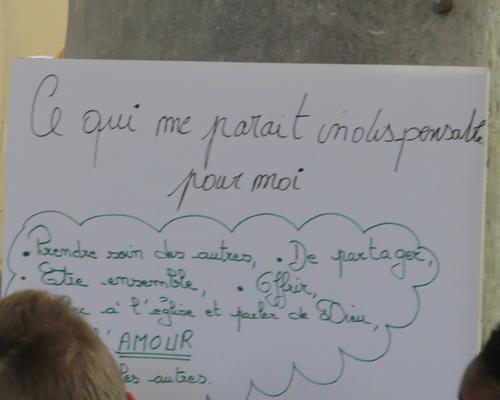 Ce qui me parait indispensable
pour moi
• Prendre soin des autres, • De partager,
• Etre ensemble, • Offrir,
à l'église et parler de Dieu,
l'AMOUR
les autres.